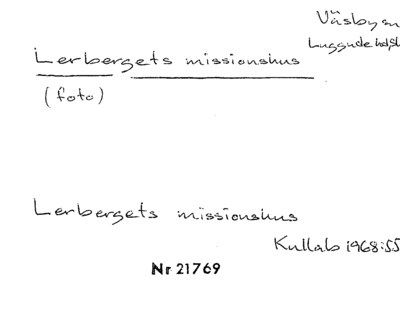 Väsby sn
Luggude hd, Sk
Lerbergets missionshus
(foto)
Lerbergets missionshus
Kullab 1968:55
Nr 21769